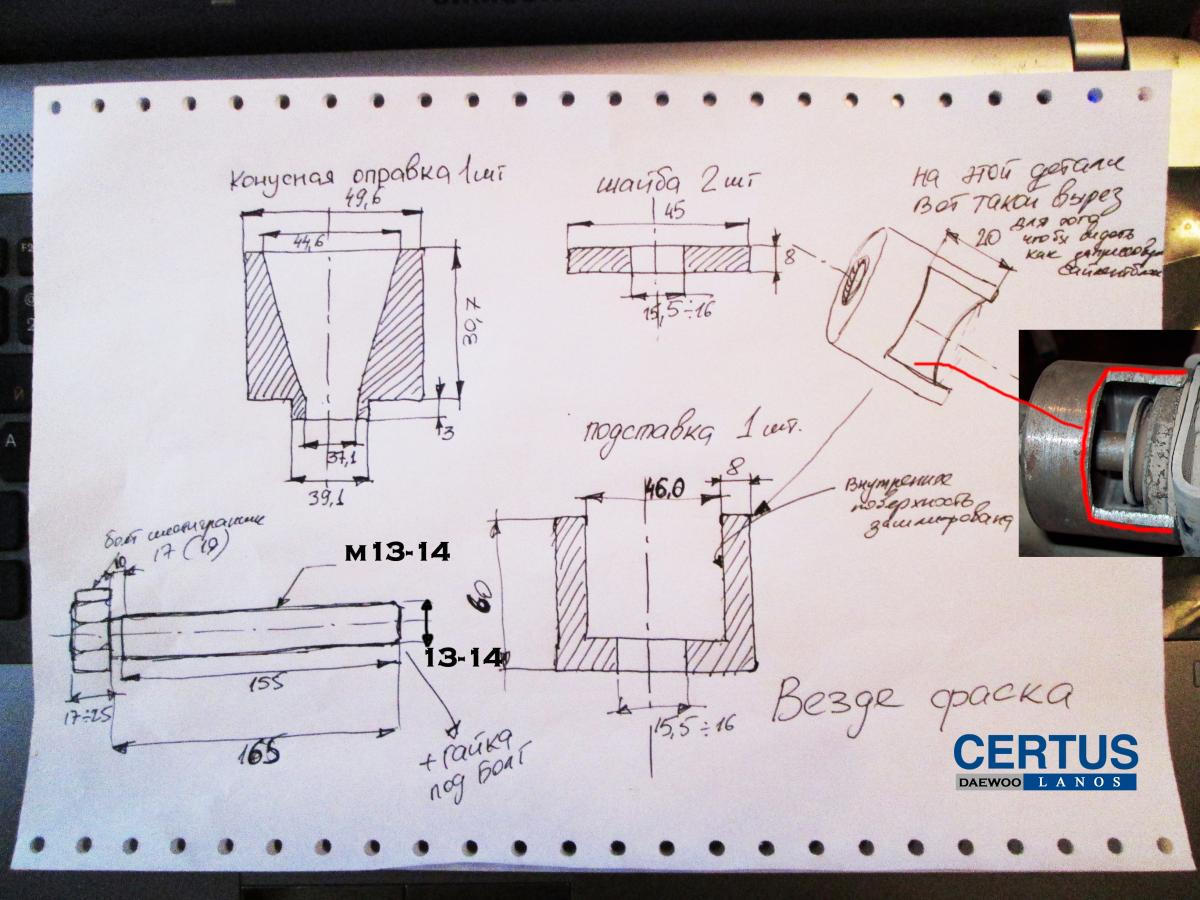 Конусная оправка 1 шт
49,6
44,6
30,7
3
37,1
39,1
шайба 2 шт
45
8
15,5÷16
На этой детали
вот такой вырез
для того
чтобы видеть
как запрессован
сайлентблок
20
подставка 1 шт.
8
46,0
60
15,5÷16
Внутренняя
поверхность
зашлифована
болт шестигранник
17 (19)
10
м13-14
13-14
155
17÷25
165
+ гайка
под болт
Везде фаска
CERTUS
DAEWOO LANOS
F2
й
A